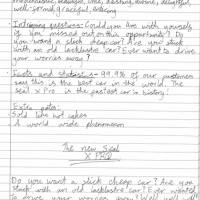 well-formed, graceful, enticing
• Intriguing questions - Could you live with yourself
if you missed out on this opportunity? Do
you want a slick cheap car? Are you stuck
with an old lacklustre car? Ever want to drive
your worries away?
• Facts and statistics - 99.9% of our customers
say this is the best car in the world. The
Seal X Pro is the fastest car in history!
Extra notes:
Sold like hot cakes
A world wide phenomenon
The new Seal
X PRO
Do you want a slick cheap car? Are you
stuck with an old lacklustre car? Ever wanted
to drive your worries away? Well well well